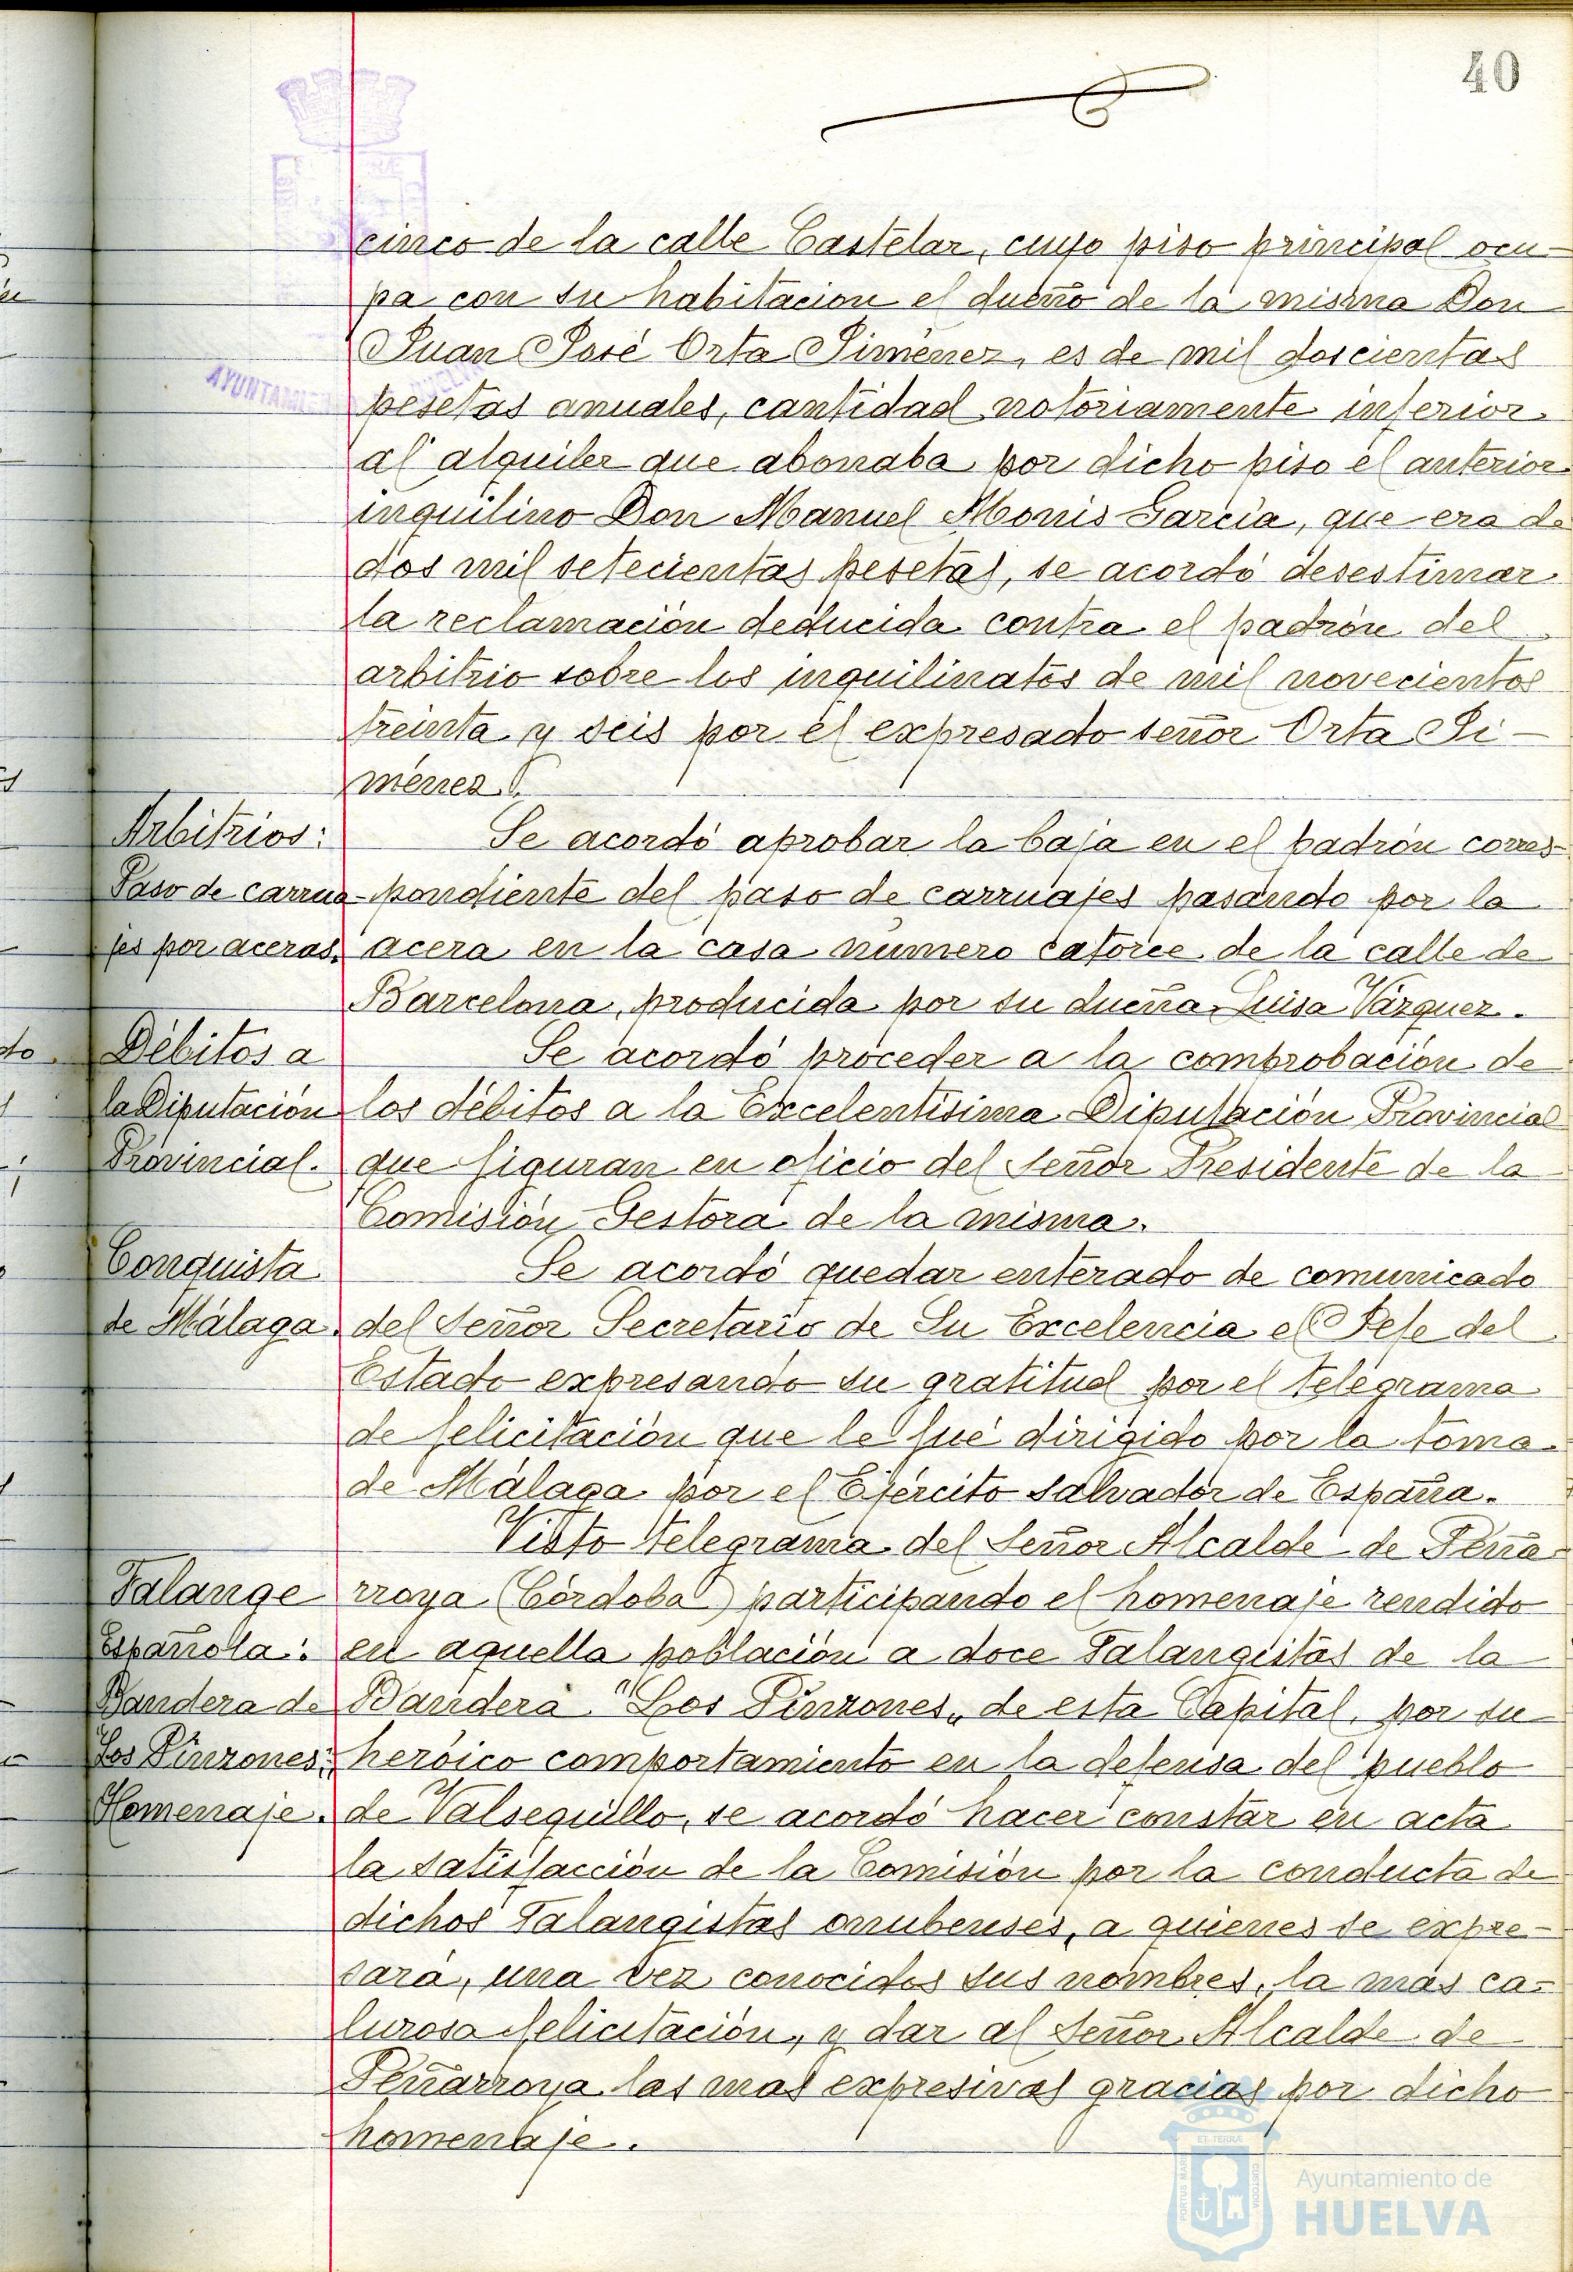 40
cinco de la calle Castelar, cuyo piso principal ocu-
pa con su habitacion el dueño de la misma Don
Juan José Orta Jiménez, es de mil doscientas
pesetas anuales, cantidad notoriamente inferior
al alquiler que abonaba por dicho piso el anterior
inquilino Don Manuel Monis García, que era de
dos mil setecientas pesetas, se acordó desestimar
la reclamación deducida contra el padrón del
arbitrio sobre los inquilinatos de mil novecientos
treinta y seis por el expresado señor Orta Ji-
ménez.
Arbitrios:
Paso de carrua-
jes por aceras.
Se acordó aprobar la baja en el padrón corres-
pondiente del paso de carruajes pasando por la
acera en la casa número catorce de la calle de
Barcelona, producida por su dueña Luisa Vázquez.
Débitos a
la Diputación
Provincial.
Se acordó proceder a la comprobación de
los débitos a la Excelentísima Diputación Provincial
que figuran en oficio del Señor Presidente de la
Comisión Gestora de la misma.
Conquista
de Málaga.
Se acordó quedar enterado de comunicado
del Señor Secretario de Su Excelencia el Jefe del
Estado expresando su gratitud por el telegrama
de felicitación que le fué dirigido por la toma
de Málaga por el Ejército salvador de España.
Falange
Española:
Bandera de
Los Pinzones:
Homenaje.
Visto telegrama del Señor Alcalde de Peña-
rroya (Córdoba) participando el homenaje rendido
en aquella población a doce Falangistas de la
Bandera "Los Pinzones„ de esta Capital, por su
heróico comportamiento en la defensa del pueblo
de Valsequillo, se acordó hacer constar en acta
la satisfacción de la Comisión por la conducta de
dichos Falangistas onubenses, a quienes se expre-
sará, una vez conocidos sus nombres, la más ca-
lurosa felicitación, y dar al Señor Alcalde de
Peñarroya las mas expresivas gracias por dicho
homenaje.
AYUNTAMIE
HUELVA
PORTUS MARIS
ET TERRÆ
CUSTODIA
Ayuntamiento de
HUELVA